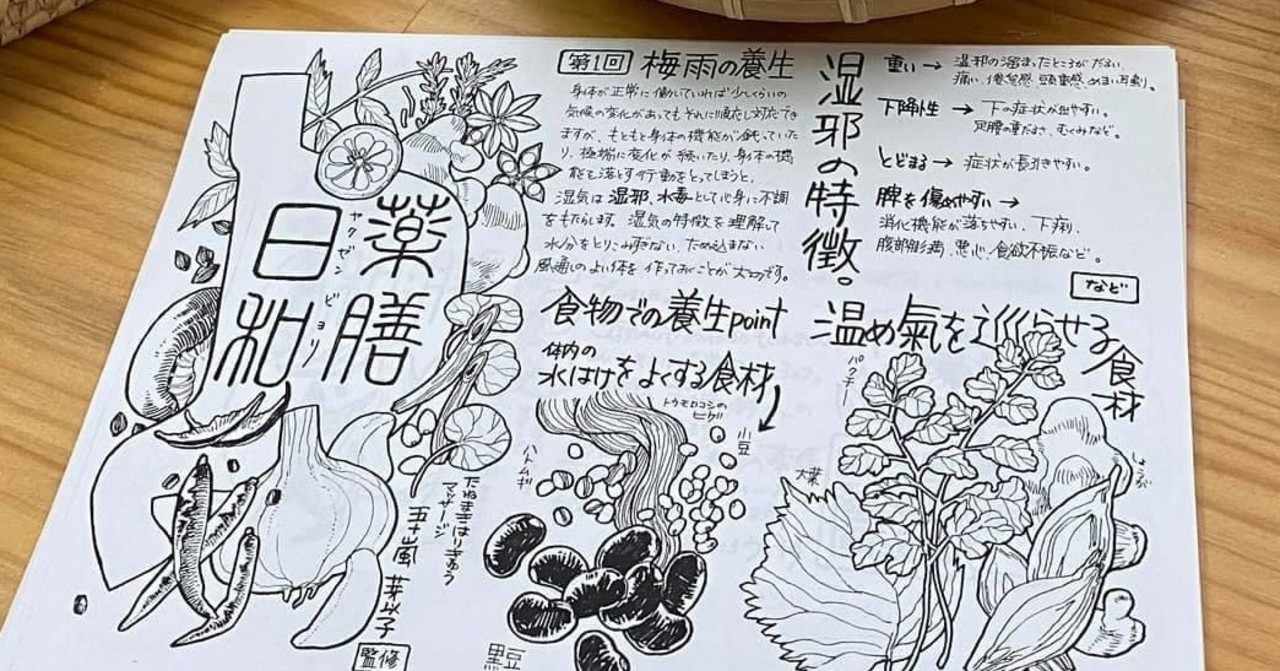 薬膳
日和
ヤクゼン
ビヨリ
たねまきはりきゅう
マッサージ
五十嵐 芽以子
監修
第1回 梅雨の養生
身体が正常に働いていれば少しくらいの
気候の変化があってもそれに順応し対応でき
ますが、もともと身体の機能が鈍っていた
り、極端に変化が続いたり、身体の機
能を落とす行動をとってしまうと、
湿気は湿邪、水毒として心身に不調
をもたらします。湿気の特徴を理解して
水分をとりこみすぎない、ため込まない
風通しのよい体を作っておくことが大切です。
湿邪の特徴。
重い→ 湿邪の溜まったところがだるい、
痛い、倦怠感、頭重感、めまい
下降性→ 下の症状が出やすい。
足腰の重だるさ、むくみなど。
とどまる→ 症状が長引きやすい。
脾を傷めやすい→
消化機能が落ちやすい、下痢、
腹部膨満、悪心、食欲不振など。
など
食物での養生point
体内の
水はけをよくする食材
トウモロコシの
ヒゲ
小豆
ハトムギ
黒豆
温め氣を巡らせる食材
パクチー
大葉
しょうが